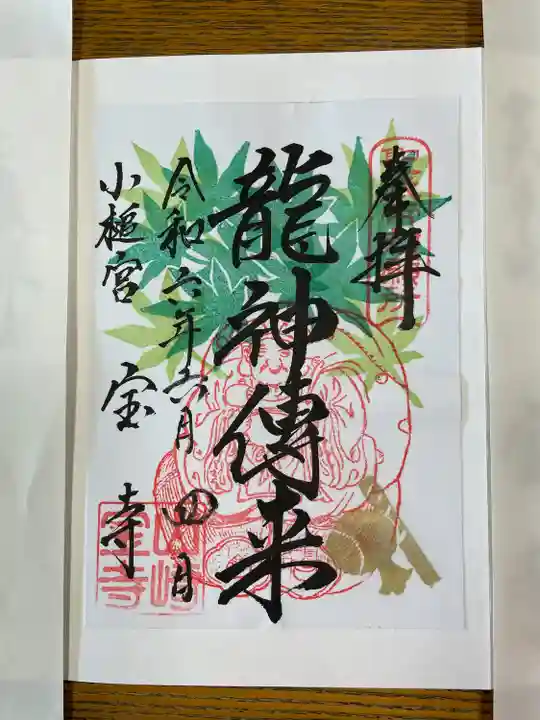 奉拝
龍神傳来
令和六年六月四日
小槌宮 宝寺